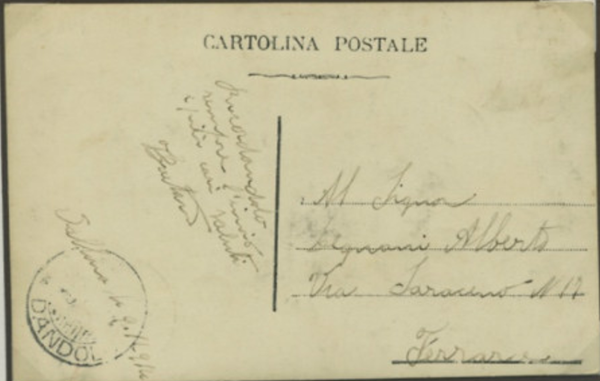 CARTOLINA POSTALE
Ricordandoto
sempre l'invio
i più cari saluti
Al Signor
Legnani Alberto
Via Saraceno N 17
Ferrara
DANDO